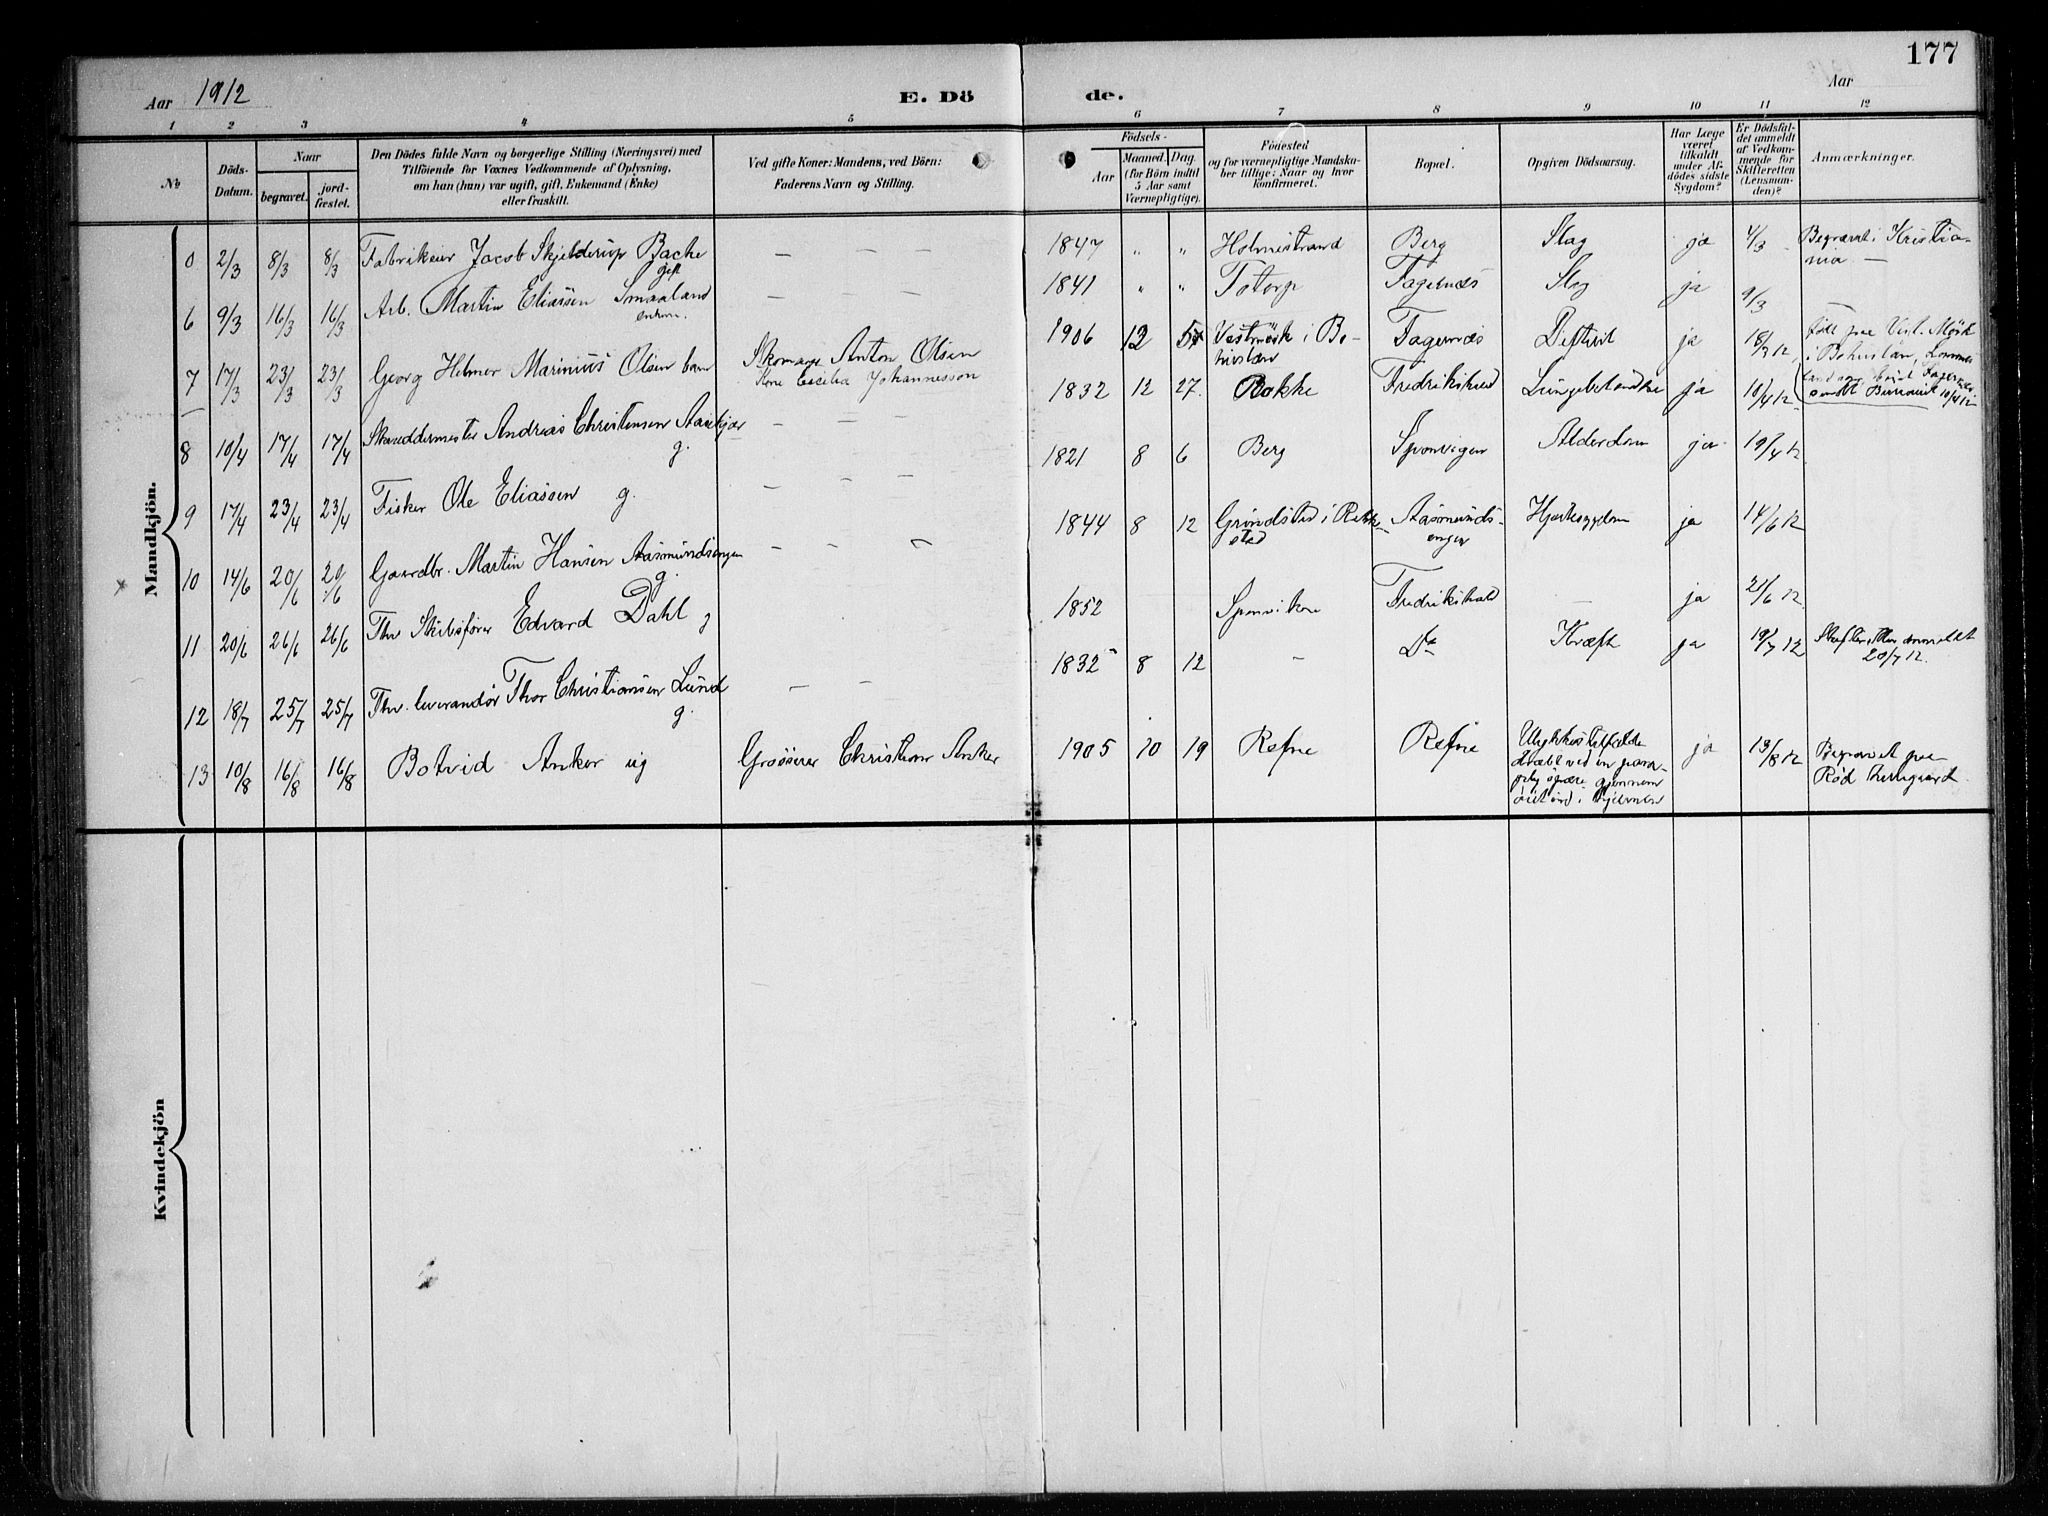 177
Aar 1912
E. Dö
de.
Aar
1 2 3 4 5 6 7 8 9 10 11 12
No
Döds-
Datum.
Naar
begravet.
jord-
fæstet.
Den Dödes fulde Navn og borgerlige Stilling (Næringsvei) med
Tilföiende for Voxnes Vedkommende af Oplysning,
om han (hun) var ugift, gift, Enkemand (Enke)
eller fraskilt.
Ved gifte Koner: Mandens, ved Börn:
Faderens Navn og Stilling.
Födsels-
Aar
Maaned. Dag.
(for Börn indtil
5 Aar samt
Værnepligtige).
Födested
og for værnepligtige Mandska-
ber tillige: Naar og hvor
konfirmeret.
Bopæl.
Opgiven Dödsaarsag.
Har Læge
været
tilkaldt
under Af-
dödes sidste
Sygdom?
Er Dödsfal-
det anmeldt
af Vedkom-
mende for
Skifteretten
(Lensman-
den)?
Anmærkninger.
Mandkjön.
2/3 8/3 8/3 Fabrikeier Jacob Skjelderup Bache
gift
— — 1847 " " Holmestrand Berg Slag ja 4/3 Begravet i Kristia-
nia —
6 9/3 16/3 16/3 Arb. Martin Eliassen Smaaland
enkem.
— — — 1841 " " Totorp Fagernæs Slag ja 9/3 —
7 17/3 23/3 23/3 Georg Helmer Marinius Olsen barn
Skomager Anton Olsen
Cecilia Johannesson
1906 12 5 Vestmösk i Bo-
huslæn
Fagernæs Difterit ja 18/3 12
i Bohuslän,
8 10/4 17/4 17/4 Skræddermester Andreas Christensen
g.
— — — 1832 12 27. Rokke Fredrikshald Lungebetændelse ja 10/4 12
9 17/4 23/4 23/4 Fisker Ole Eliassen g.
— — — 1821 8 6 Berg Sponvigen Alderdom ja 19/4 12
10 14/6 20/6 20/6 Gaardbr. Martin Hansen Aasmundsengen
g.
— — 1844 8 12 Grimdsted i Rakke-
stad
Aasmunds-
engen
Hjertesygdom ja 14/6 12
11 20/6 26/6 26/6 Fhv Skibsfører Edvard Dahl g
1852 Sponviken Fredrikshald — ja 21/6 12
12 18/7 25/7 25/7 Fhv. leverandör Thor Christiansen Lund
g.
— — 1832 8 12 — Do Kræft ja 19/7 12
20/7 12.
13 10/8 16/8 16/8 Botvid Anker ug Grosserer Christian Anker
1905 10 19 Refne Refne Ulykkestilfælde
dræbt ved en
gjennem
öiet ind i hjernen
ja 13/8 12 Begravet paa
Rød
Kvindekjön